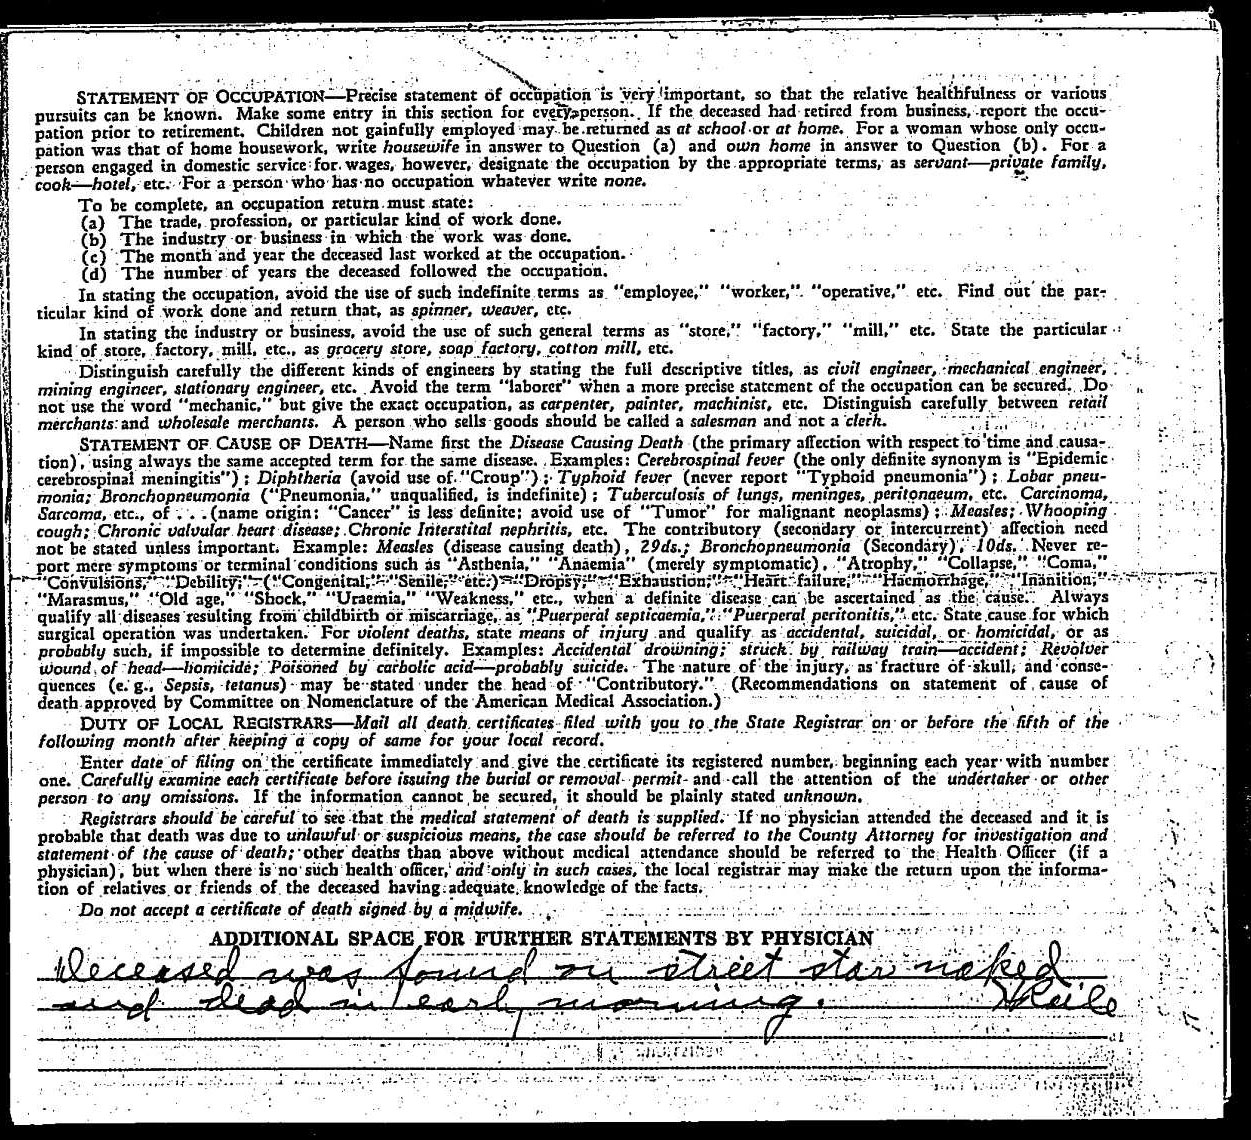 STATEMENT OF OCCUPATION—Precise statement of occupation is very important, so that the relative healthfulness or various
pursuits can be known. Make some entry in this section for every person. If the deceased had retired from business, report the occu-
pation prior to retirement. Children not gainfully employed may be returned as at school or at home. For a woman whose only occu-
pation was that of home housework, write housewife in answer to Question (a) and own home in answer to Question (b). For a
person engaged in domestic service for wages, however, designate the occupation by the appropriate terms, as servant—private family,
cook—hotel, etc. For a person who has no occupation whatever write none.
To be complete, an occupation return must state:
(a) The trade, profession, or particular kind of work done.
(b) The industry or business in which the work was done.
(c) The month and year the deceased last worked at the occupation.
(d) The number of years the deceased followed the occupation.
In stating the occupation, avoid the use of such indefinite terms as "employee," "worker," "operative," etc. Find out the par-
ticular kind of work done and return that, as spinner, weaver, etc.
In stating the industry or business, avoid the use of such general terms as "store," "factory," "mill," etc. State the particular
kind of store, factory, mill, etc., as grocery store, soap factory, cotton mill, etc.
Distinguish carefully the different kinds of engineers by stating the full descriptive titles, as civil engineer, mechanical engineer,
mining engineer, stationary engineer, etc. Avoid the term "laborer" when a more precise statement of the occupation can be secured. Do
not use the word "mechanic," but give the exact occupation, as carpenter, painter, machinist, etc. Distinguish carefully between retail
merchants and wholesale merchants. A person who sells goods should be called a salesman and not a clerk.
STATEMENT OF CAUSE OF DEATH—Name first the Disease Causing Death (the primary affection with respect to time and causa-
tion), using always the same accepted term for the same disease. Examples: Cerebrospinal fever (the only definite synonym is "Epidemic
cerebrospinal meningitis"); Diphtheria (avoid use of "Croup"); Typhoid fever (never report "Typhoid pneumonia"); Lobar pneu-
monia; Bronchopneumonia ("Pneumonia," unqualified, is indefinite); Tuberculosis of lungs, meninges, peritonaeum, etc. Carcinoma,
Sarcoma, etc., of . . . (name origin: "Cancer" is less definite; avoid use of "Tumor" for malignant neoplasms); Measles; Whooping
cough; Chronic valvular heart disease; Chronic Interstital nephritis, etc. The contributory (secondary or intercurrent) affection need
not be stated unless important. Example: Measles (disease causing death), 29ds.; Bronchopneumonia (Secondary), 10ds. Never re-
port mere symptoms or terminal conditions such as "Asthenia," "Anaemia" (merely symptomatic), "Atrophy," "Collapse," "Coma,"
"Convulsions," "Debility," ("Congenital," "Senile," etc.) "Dropsy," "Exhaustion," "Heart failure," "Haemorrhage," "Inanition,"
"Marasmus," "Old age," "Shock," "Uraemia," "Weakness," etc., when a definite disease can be ascertained as the cause. Always
qualify all diseases resulting from childbirth or miscarriage, as "Puerperal septicaemia," "Puerperal peritonitis," etc. State cause for which
surgical operation was undertaken. For violent deaths, state means of injury and qualify as accidental, suicidal, or homicidal, or as
probably such, if impossible to determine definitely. Examples: Accidental drowning; struck by railway train—accident; Revolver
wound of head—homicide; Poisoned by carbolic acid—probably suicide. The nature of the injury, as fracture of skull, and conse-
quences (e. g., Sepsis, tetanus) may be stated under the head of "Contributory." (Recommendations on statement of cause of
death approved by Committee on Nomenclature of the American Medical Association.)
DUTY OF LOCAL REGISTRARS—Mail all death certificates filed with you to the State Registrar on or before the fifth of the
following month after keeping a copy of same for your local record.
Enter date of filing on the certificate immediately and give the certificate its registered number, beginning each year with number
one. Carefully examine each certificate before issuing the burial or removal permit and call the attention of the undertaker or other
person to any omissions. If the information cannot be secured, it should be plainly stated unknown.
Registrars should be careful to see that the medical statement of death is supplied. If no physician attended the deceased and it is
probable that death was due to unlawful or suspicious means, the case should be referred to the County Attorney for investigation and
statement of the cause of death; other deaths than above without medical attendance should be referred to the Health Officer (if a
physician), but when there is no such health officer, and only in such cases, the local registrar may make the return upon the informa-
tion of relatives or friends of the deceased having adequate knowledge of the facts.
Do not accept a certificate of death signed by a midwife.
ADDITIONAL SPACE FOR FURTHER STATEMENTS BY PHYSICIAN
Deceased was found on street star naked
and dead in early morning.